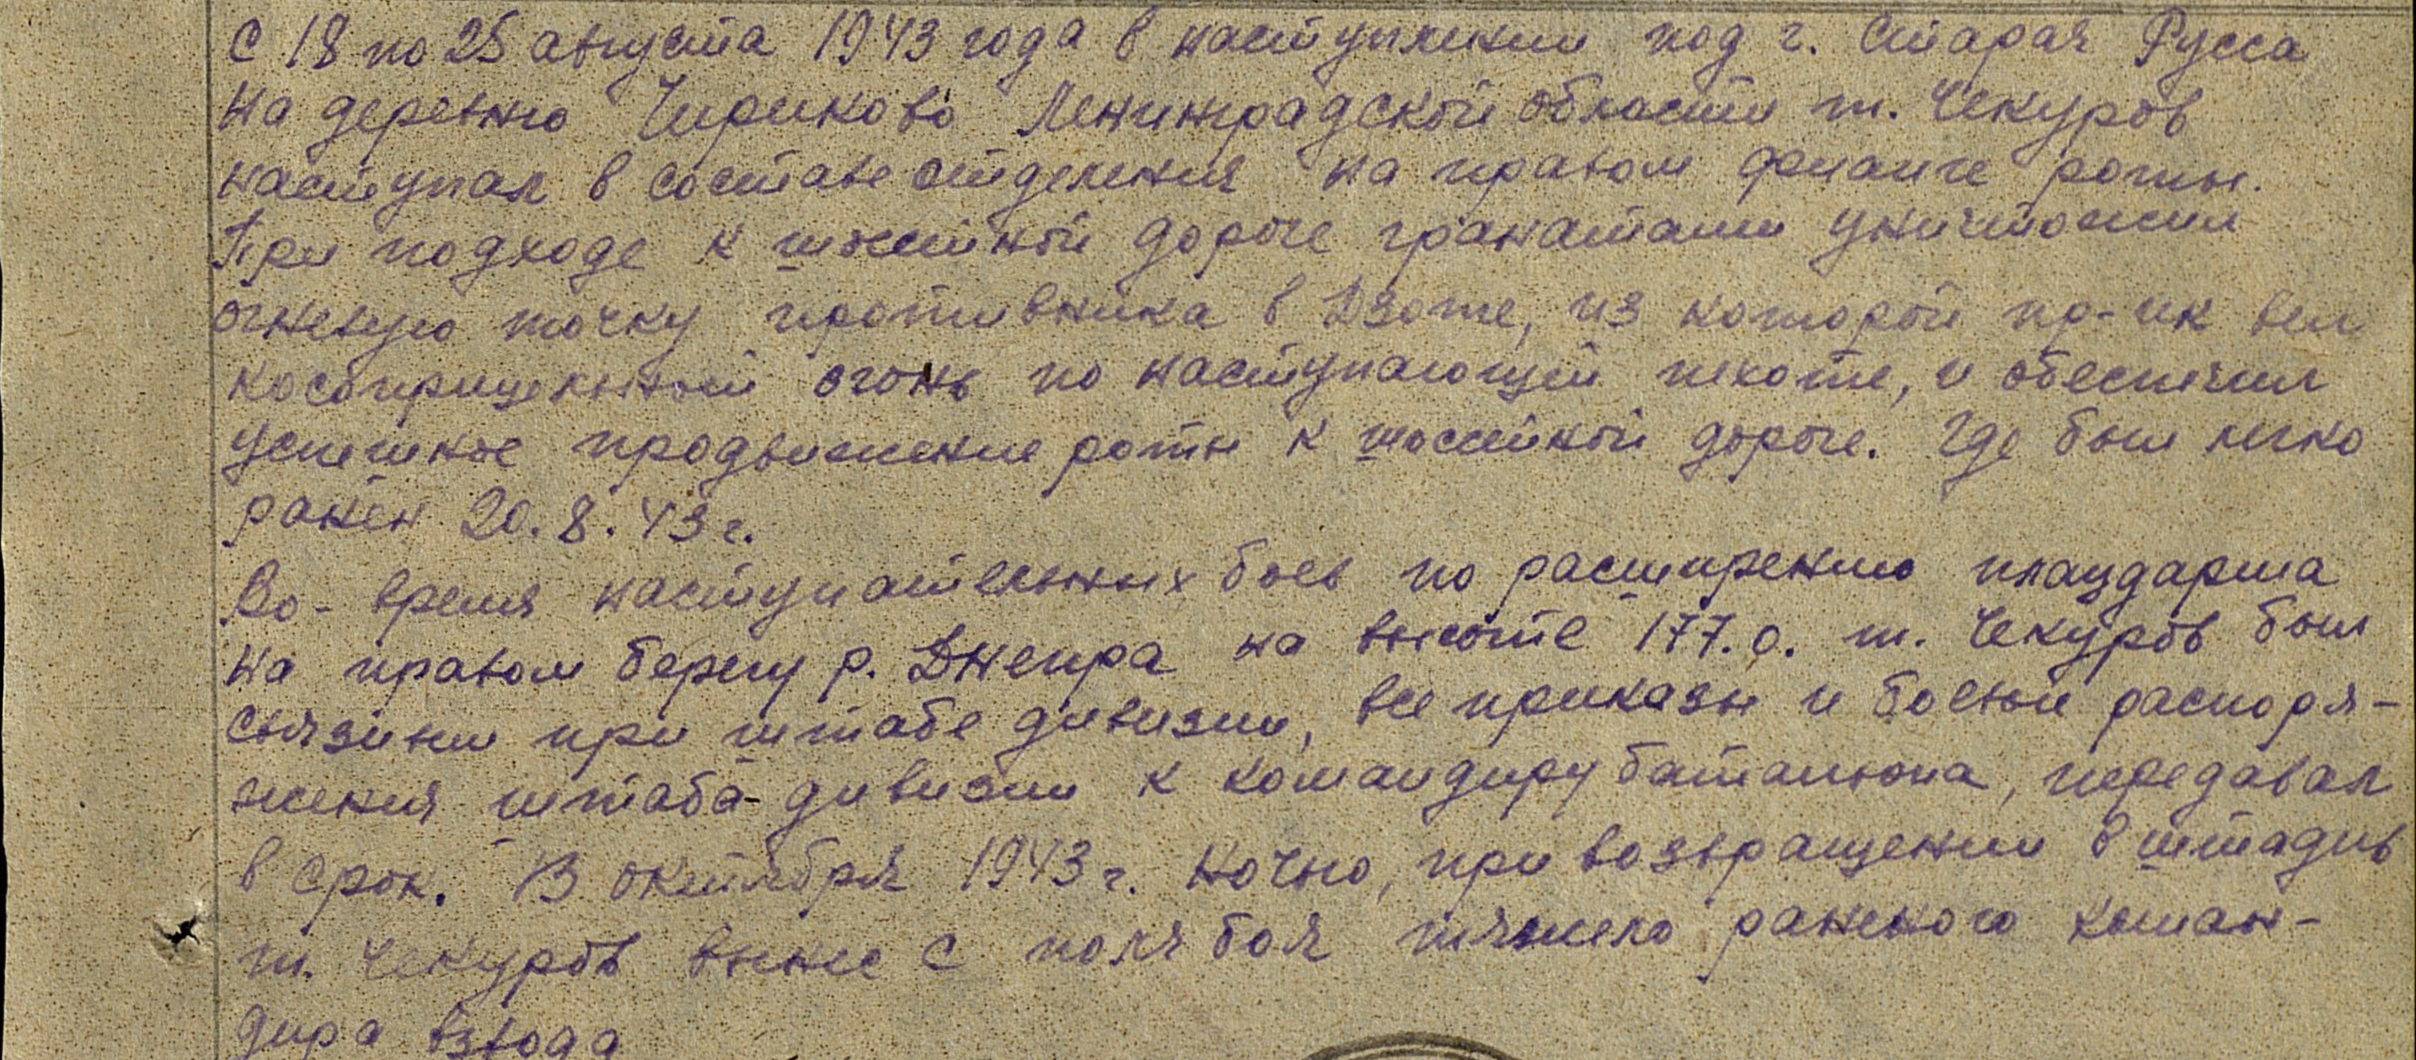 С 18 по 25 августа 1943 года в наступлении под г. Старая Русса
на деревню Чириково Ленинградской области т. Чекуров
наступал в составе отделения на правом фланге роты.
При подходе к шоссейной дороге гранатами уничтожил
огневую точку противника в Дзоте, из которой пр-ик вел
косоприцельный огонь по наступающей пехоте, и обеспечил
успешное продвижение роты к шоссейной дороге. Где был легко
ранен 20.8.43г.
Во-время наступательных боев по расширению плацдарма
на правом берегу р. Днепра на высоте 177.0. т. Чекуров был
связным при штабе дивизии, все приказы и боевые распоря-
жения штаба дивизии к командиру батальона, передавал
в срок. 13 октября 1943г. ночью, при возвращении в штадив
т. Чекуров вынес с поля боя тяжело раненого коман-
дира взвода